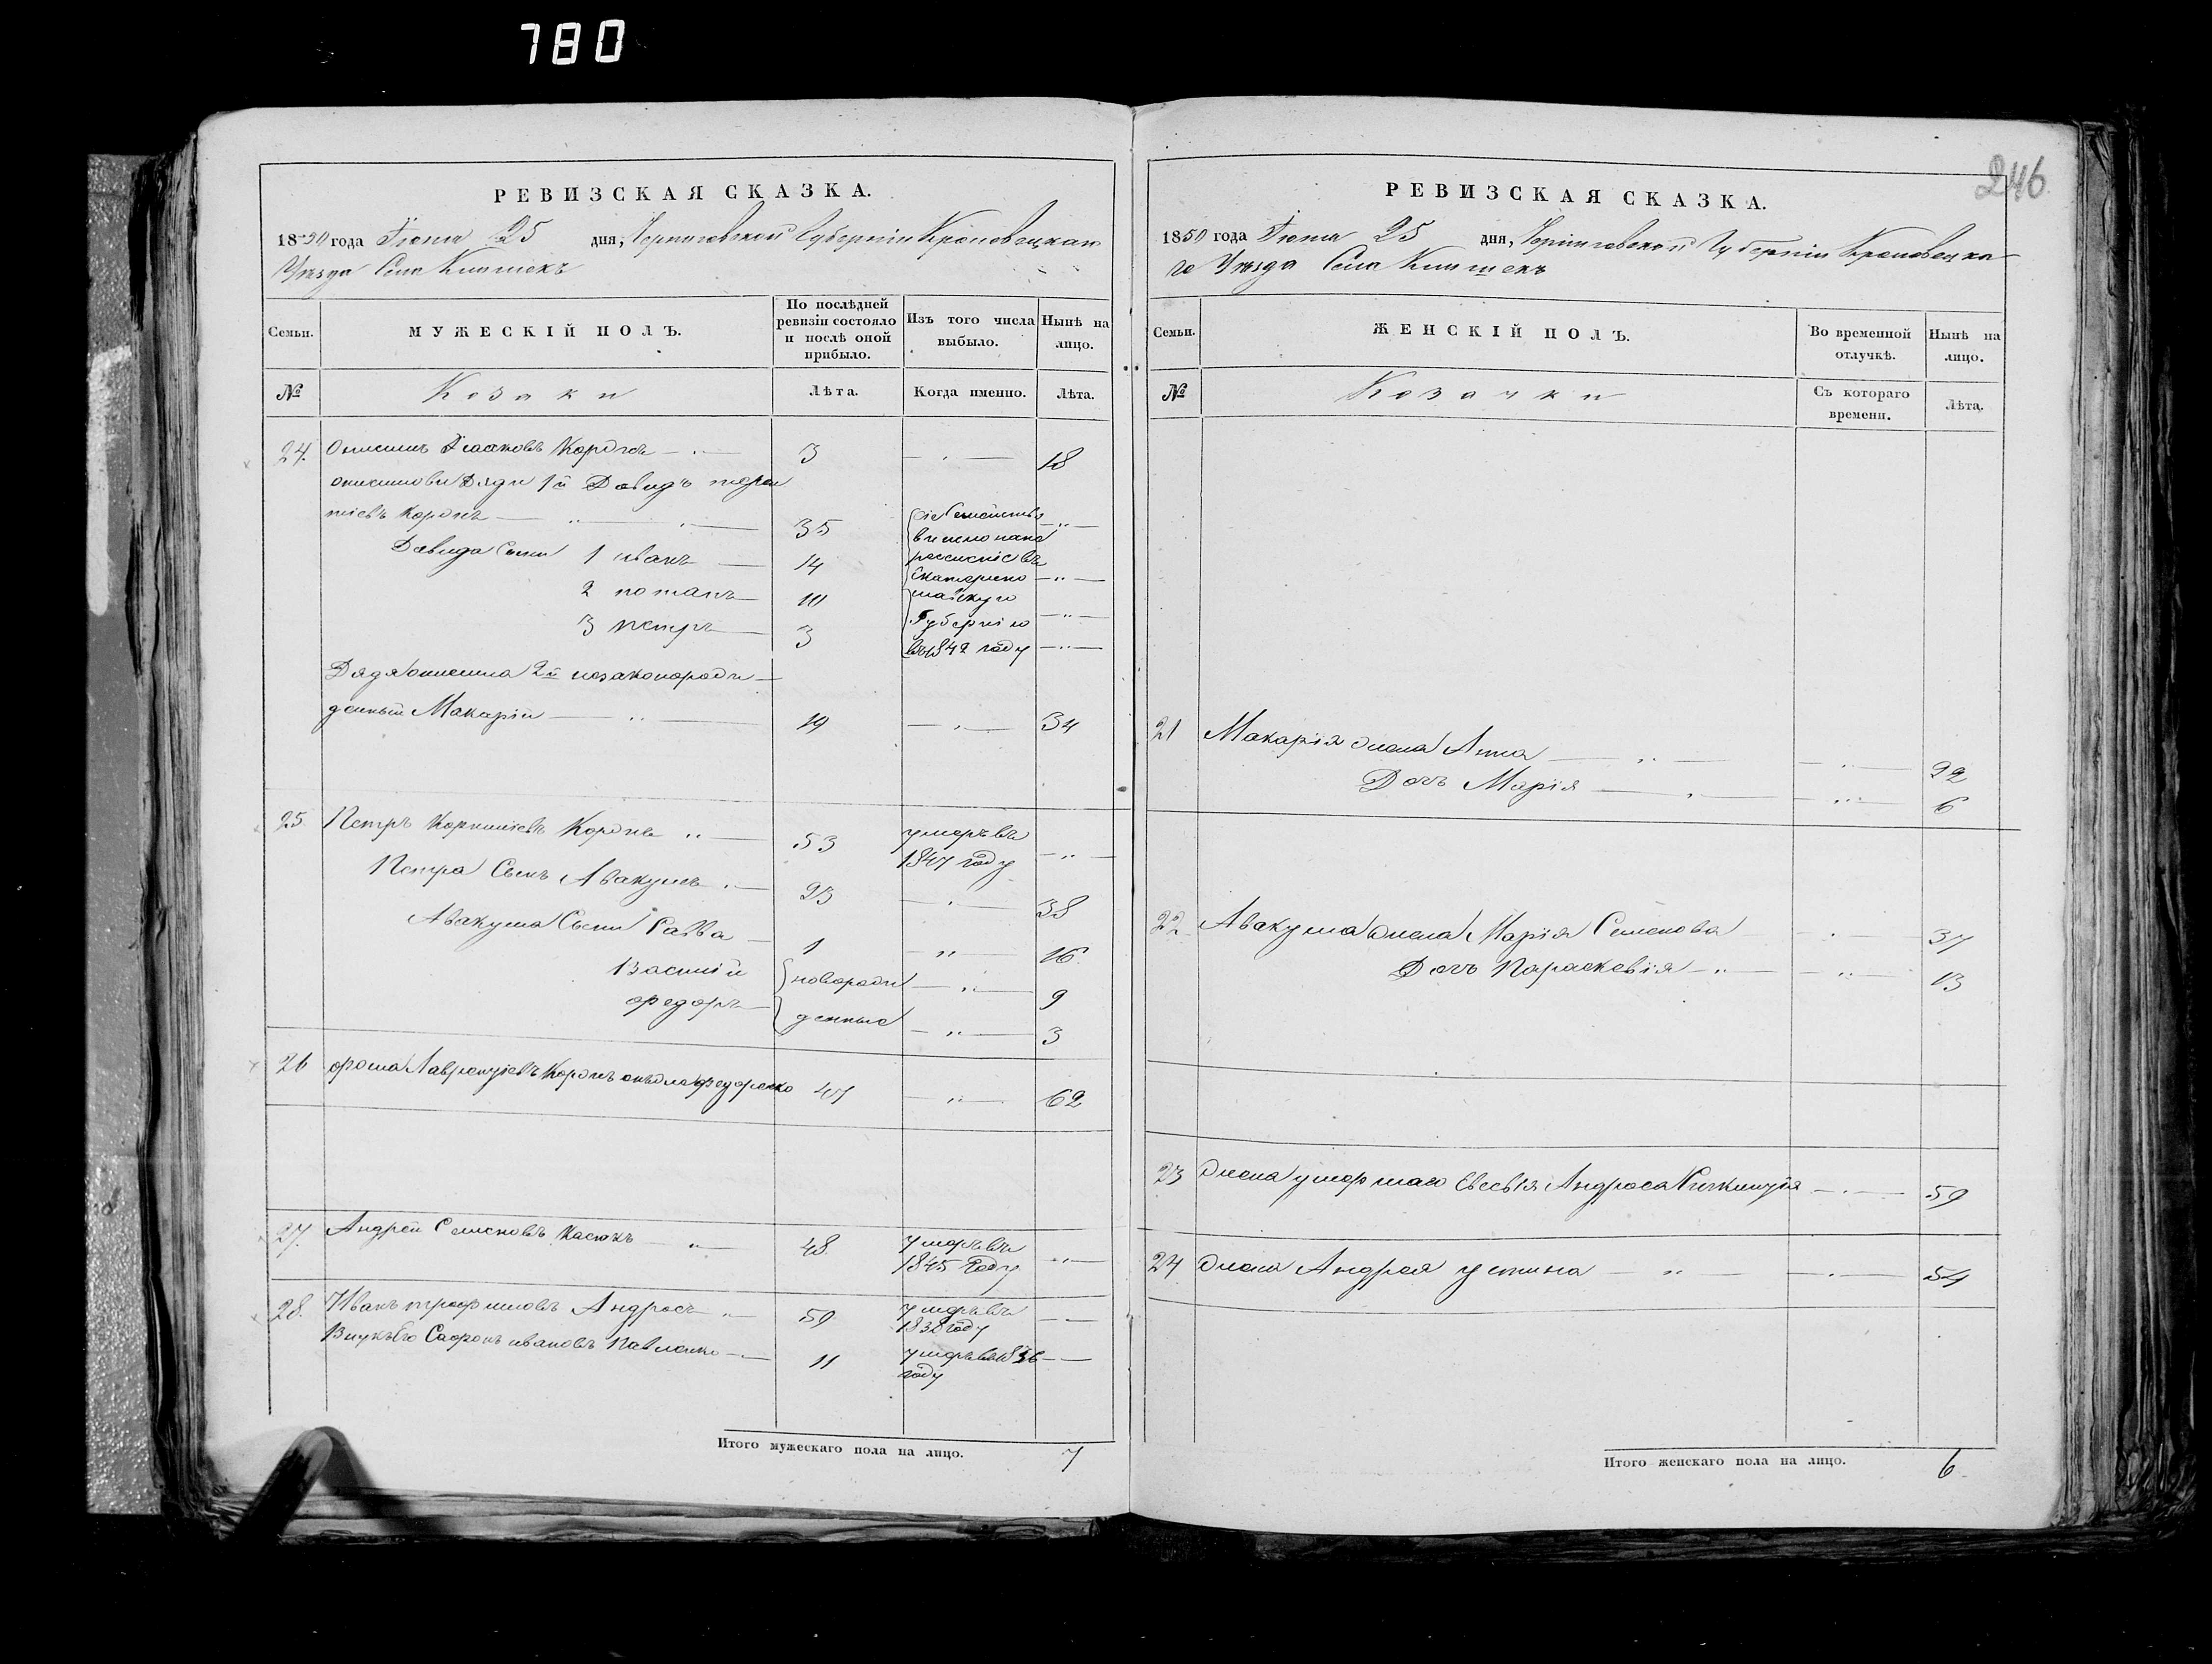 780
246
РЕВИЗСКАЯ СКАЗКА.
1850 года Іюня 25 дня, Черниговской Губерніи Кролевецкаго
Уѣзда Села Клишекъ
Семьи. МУЖЕСКІЙ ПОЛЪ. По послѣдней ревизіи состояло и послѣ оной прибыло. Изъ того числа выбыло. Нынѣ на лицо.
№ Козаки Лѣта. Когда именно. Лѣта.
24. Онисимъ 3 — 18
Онисимовы Дяди 1й Давидъ
35 сіе Семейство
Давида Сыны 1 иванъ — 14
2 потапъ — 10
3 петръ — 3 Губернію
въ 1842 году
Дядя Онисима 2й незаконорож
денный Макарій — 19 — 34
25 Петръ 53 умеръ въ
1847 году
Петра Сынъ Авакумъ — 23 — 38
Авакума Сыны Савва — 1 — 16
Василій новорож — 9
федоръ — денные — 3
26 фома Лаврентіевъ 47 — 62
27. Андрей Семеновъ 48 умеръ въ
1845 году
28. Иванъ трофимовъ Андросъ 59 умеръ въ
1838 году
Внукъ Его Сафронъ ивановъ Павленко — 11 умеръ въ 1836
году
Итого мужескаго пола на лицо. 7
РЕВИЗСКАЯ СКАЗКА.
1850 года Іюня 25 дня, Черниговской Губерніи Кролевецка
го Уѣзда Села Клишекъ
Семьи. ЖЕНСКІЙ ПОЛЪ. Во временной отлучкѣ. Нынѣ на лицо.
№ Козачки Съ котораго времени. Лѣта.
21 Макарія жена Анна — 22
Дочь Марія — 6
22 Авакума жена Марія Семенова — 37
Дочь Параскевія — 13
23 жена умершаго Евсевія Андроса 59
24 жена Андрея устина — 54
Итого женскаго пола на лицо. 6